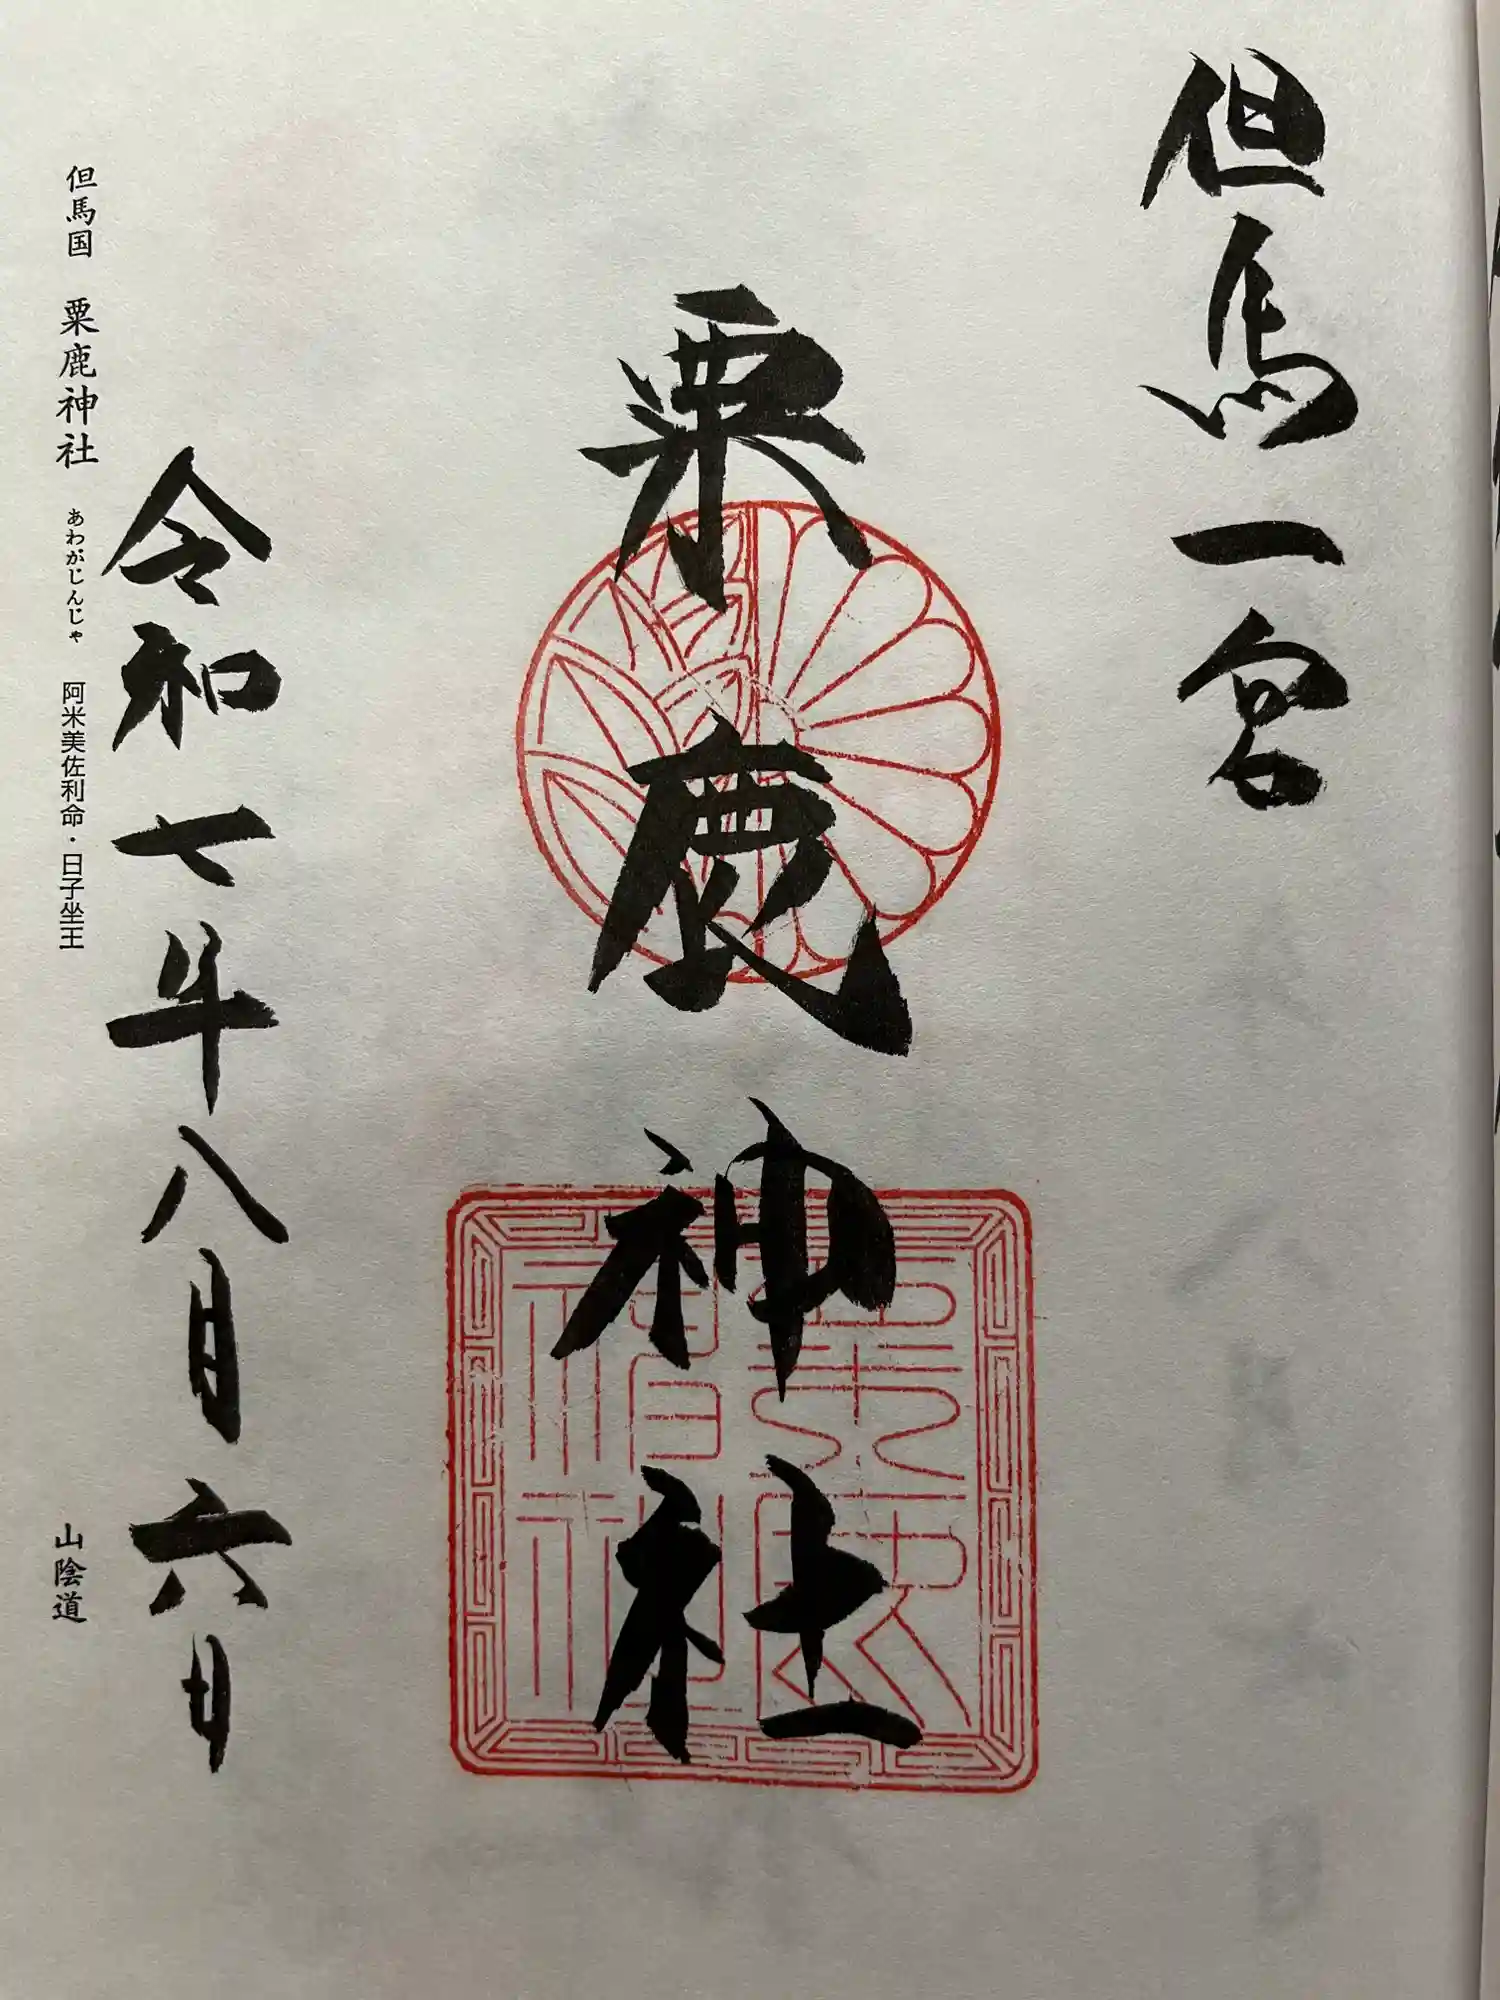 但馬一宮
粟鹿神社
令和七年八月六日
但馬国 粟鹿神社 あわがじんじゃ 阿米美佐利命・日子坐王
山陰道